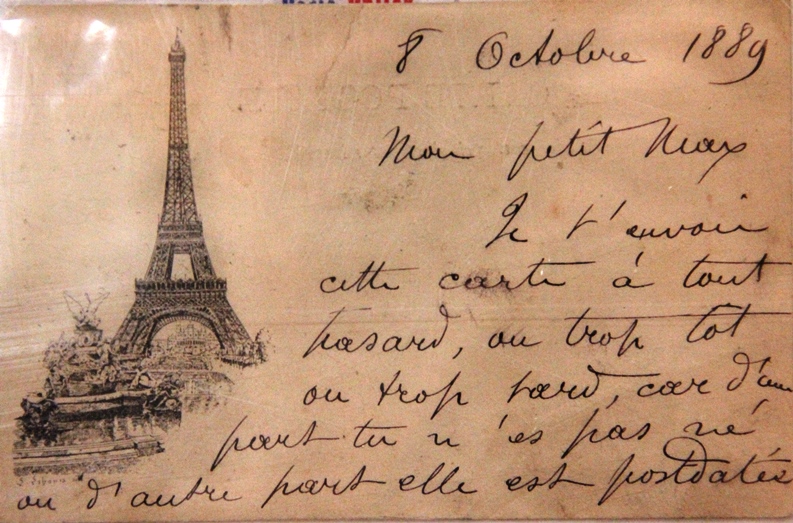 8 Octobre 1889
Mon petit Max
Je t'envoie
cette carte à tout
hasard, ou trop tôt
ou trop tard, car d'une
part tu n'es pas né
ou d'autre part elle est postdatée